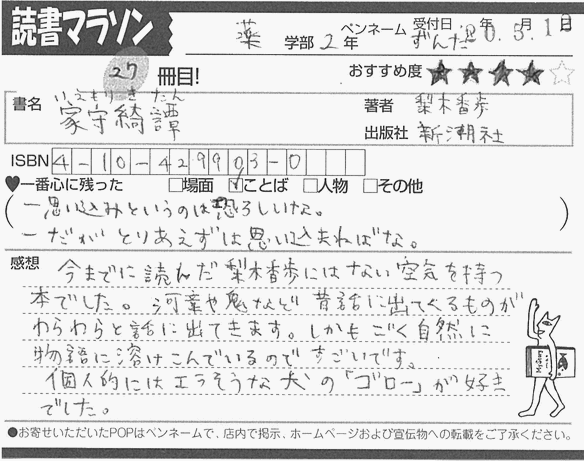 読書マラソン
薬 学部 2年 ペンネーム ずんだ 受付日 20.5.1日
27 冊目!
おすすめ度 ★★★★☆
いえもりきたん
書名 家守綺譚
著者 梨木香歩
出版社 新潮社
ISBN 4-10-429903-0
♥一番心に残った □場面 ☑ことば □人物 □その他
―思い込みというのは恐ろしいな。
―だがとりあえずは思い込まねばな。
感想 今までに読んだ梨木香歩にはない空気を持つ
本でした。河童や鬼など昔話に出てくるものが
わらわらと話に出てきます。しかもごく自然に
物語に溶けこんでいるのですごいです。
個人的にはエラそうな犬の「ゴロー」が好き
でした。
●お寄せいただいたPOPはペンネームで、店内で掲示、ホームページおよび宣伝物への転載をご了承ください。